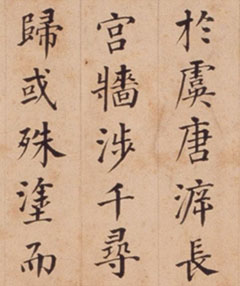 於虞唐滓長
宮牆涉千尋
歸或殊塗而